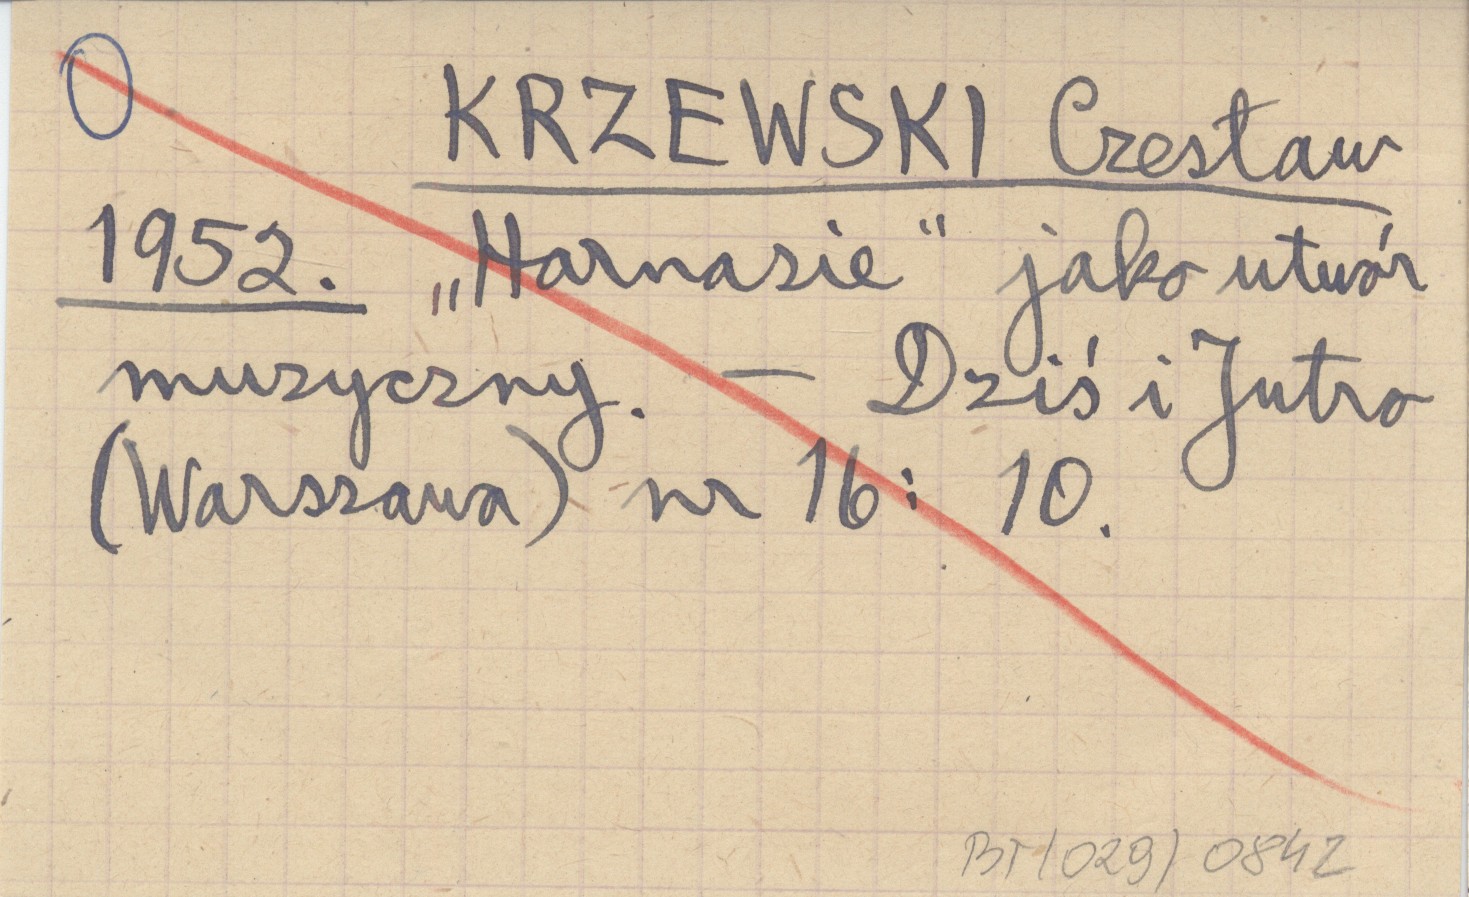 KRZEWSKI Czesław
1952. „Harnasie" jako utwór
muzyczny. — Dziś i Jutro
(Warszawa) nr 16: 10.
BT(029) 0842